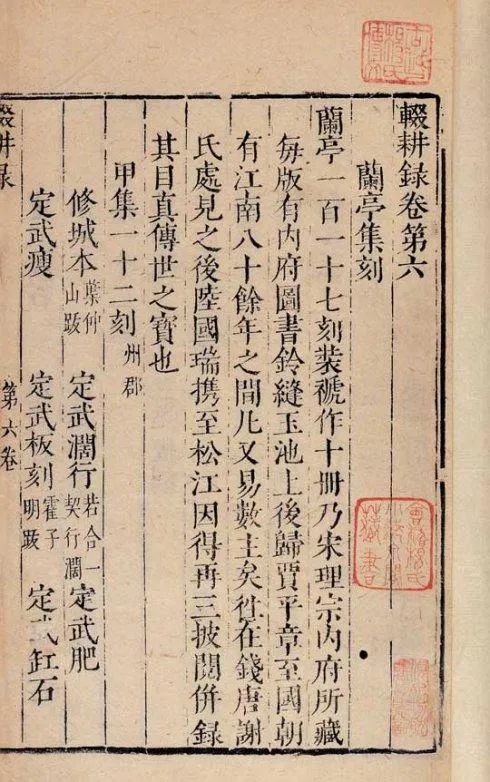 輟耕録卷第六
蘭亭集刻
蘭亭一百一十七刻裝褫作十冊乃宋理宗内府所藏
毎版有内府圖書鈐縫玉池上後歸賈平章至國朝
有江南八十餘年之間凡又易數主矣徃在錢唐謝
氏處見之後陸國瑞携至松江因得再三披閱併録
其目真傳世之寶也
甲集一十二刻州郡
修城本葉仲山跋 定武濶行若合一契行濶 定武肥
定武瘦 定武板刻霍子明跋 定武缸石
輟耕录 第六卷
藏書